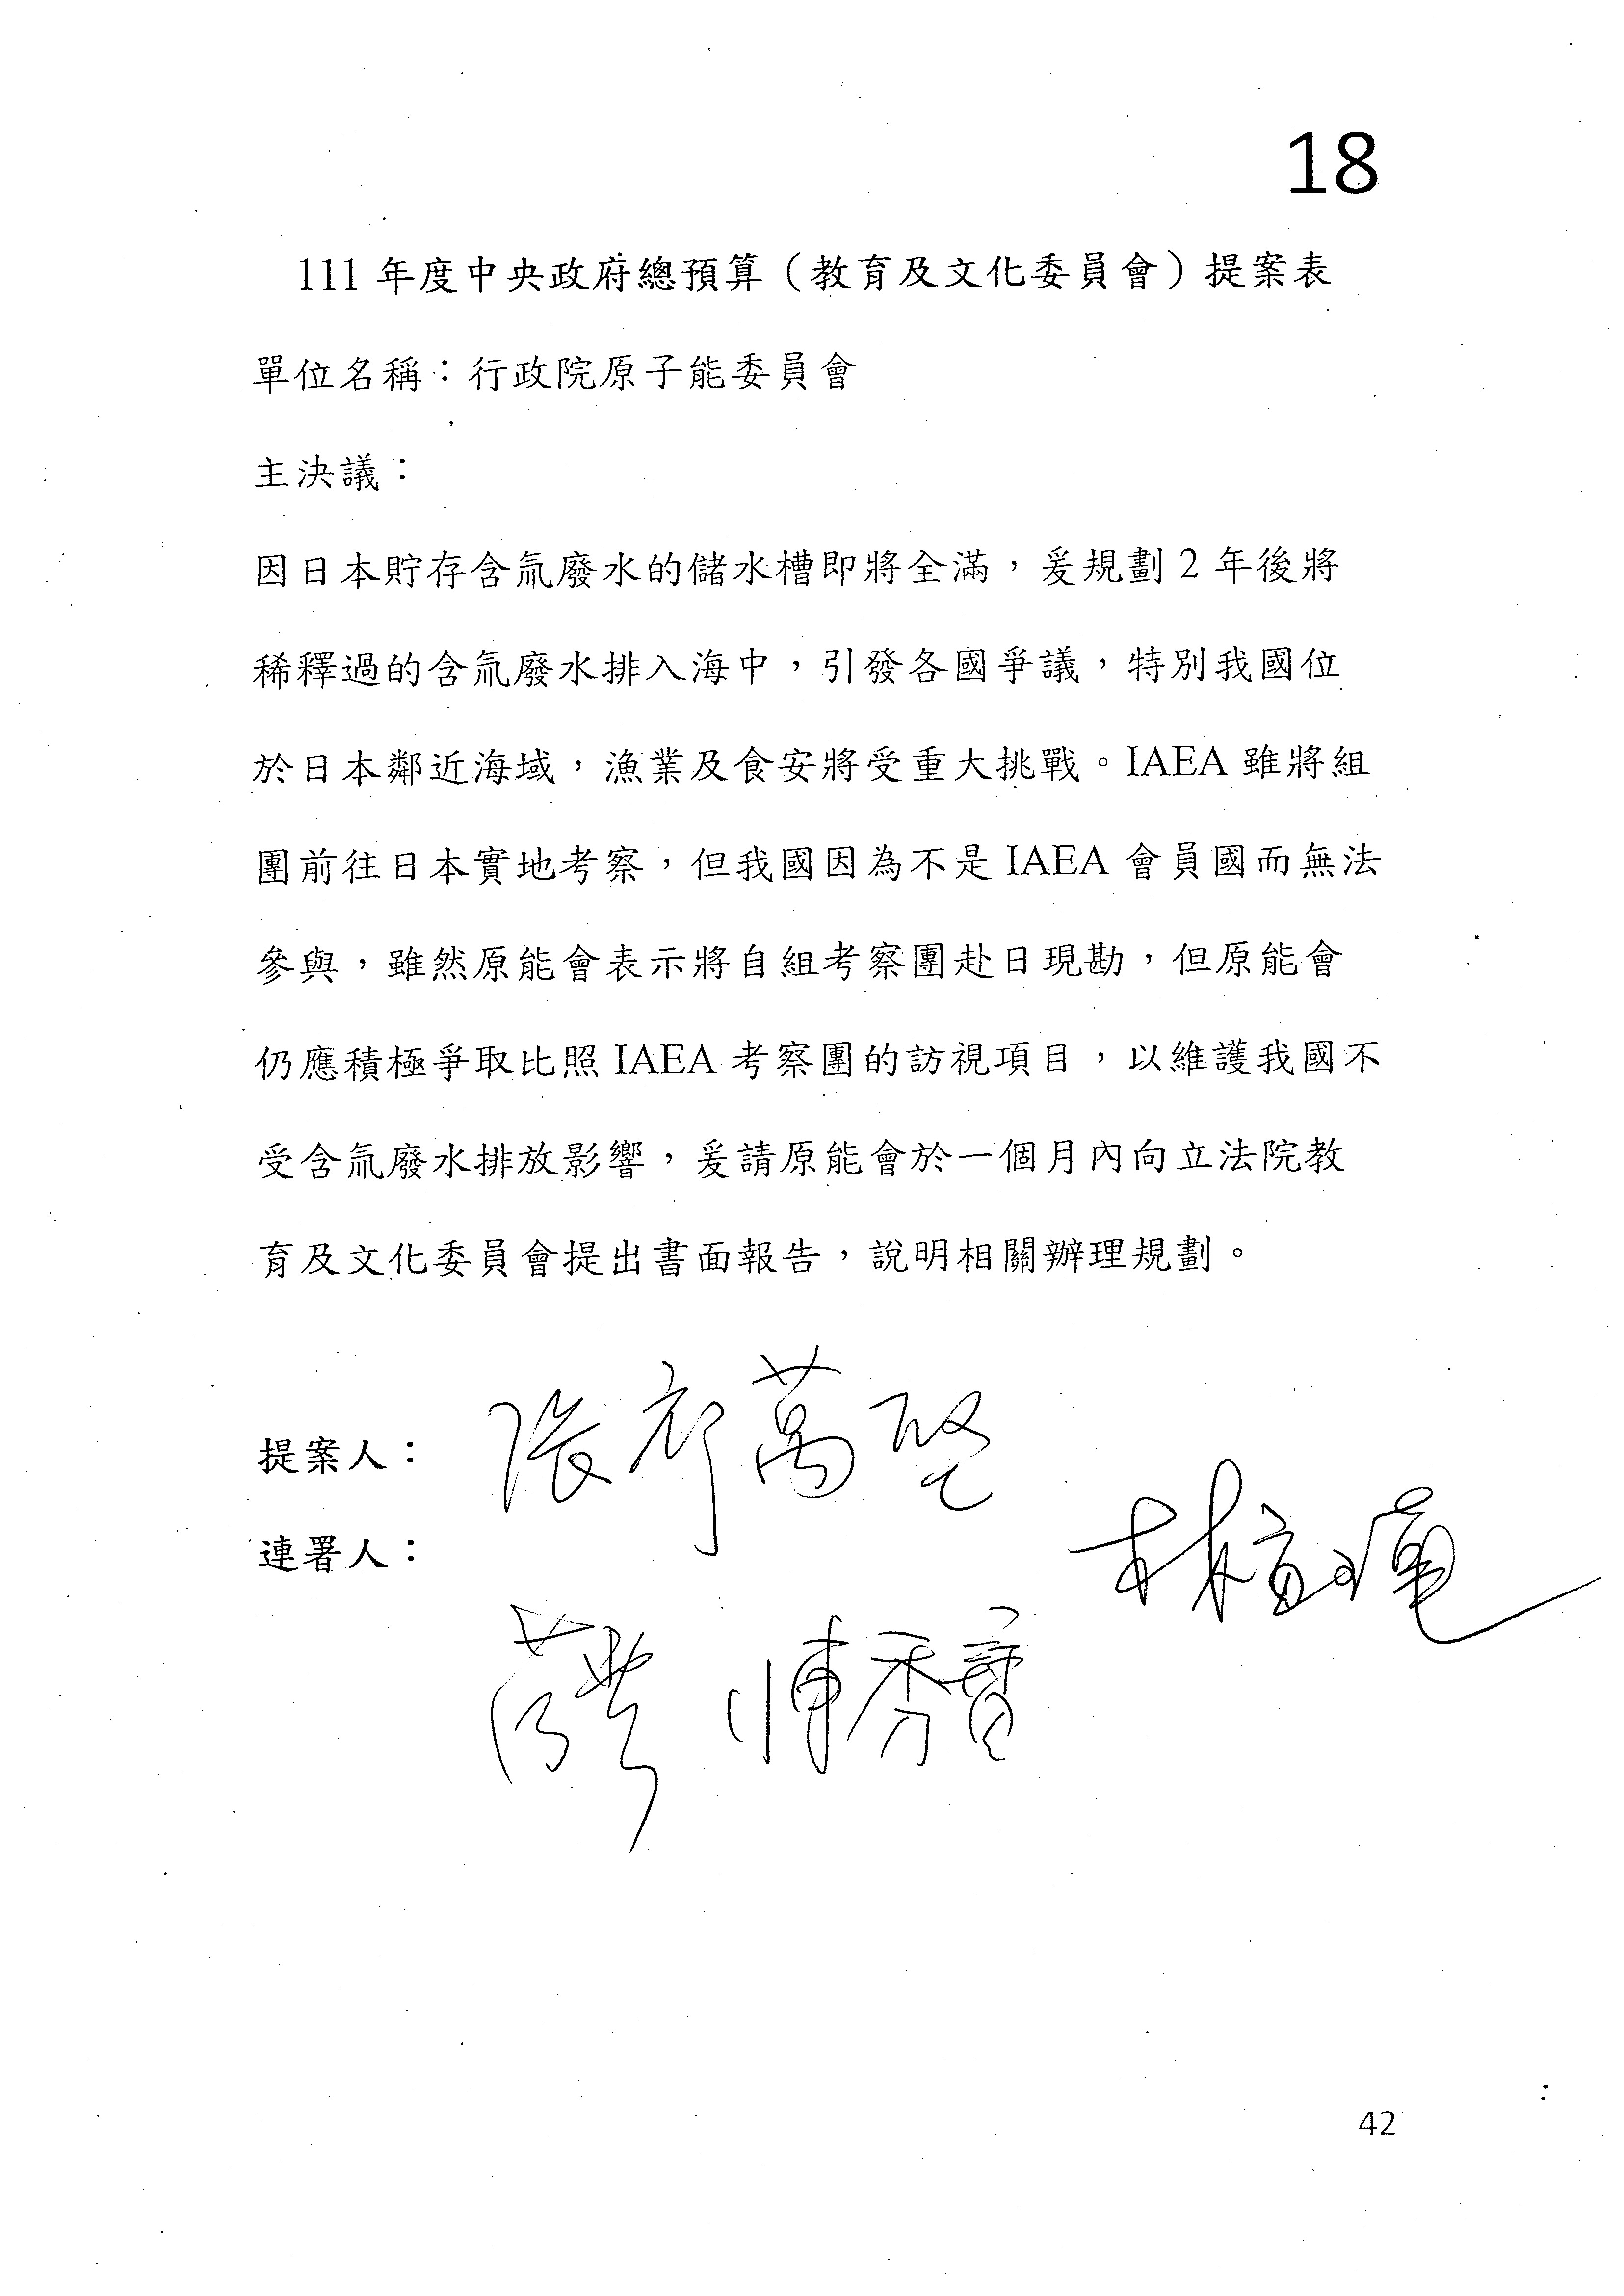 18
111 年度中央政府總預算（教育及文化委員會）提案表
單位名稱：行政院原子能委員會
主決議：
因日本貯存含氚廢水的儲水槽即將全滿，爰規劃 2 年後將
稀釋過的含氚廢水排入海中，引發各國爭議，特別我國位
於日本鄰近海域，漁業及食安將受重大挑戰。IAEA 雖將組
團前往日本實地考察，但我國因為不是 IAEA 會員國而無法
參與，雖然原能會表示將自組考察團赴日現勘，但原能會
仍應積極爭取比照 IAEA 考察團的訪視項目，以維護我國不
受含氚廢水排放影響，爰請原能會於一個月內向立法院教
育及文化委員會提出書面報告，說明相關辦理規劃。
提案人：張廖萬堅
連署人：
陳秀寳
42